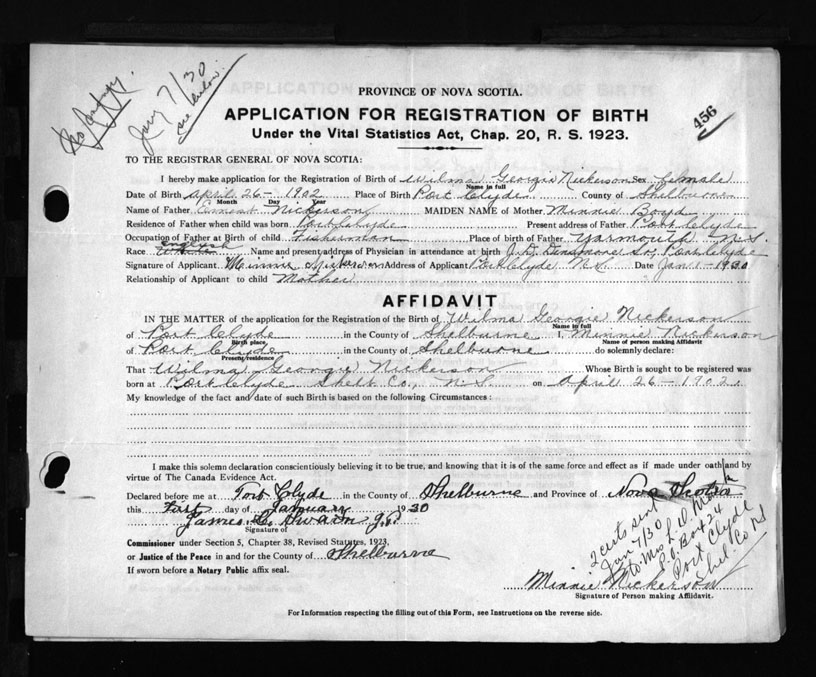 Jany 7/30
456
PROVINCE OF NOVA SCOTIA.
APPLICATION FOR REGISTRATION OF BIRTH
Under the Vital Statistics Act, Chap. 20, R. S. 1923.
TO THE REGISTRAR GENERAL OF NOVA SCOTIA:
I hereby make application for the Registration of Birth of Wilma Georgie Nickerson Sex female
Name in full
Date of Birth April 26 - 1902 Place of Birth Port Clyde County of Shelburne
Month Day Year
Name of Father Nickerson MAIDEN NAME of Mother Minnie Boyd
Residence of Father when child was born Port Clyde Present address of Father Port Clyde
Occupation of Father at Birth of child Fisherman Place of birth of Father Yarmouth N.S.
English
Race Name and present address of Physician in attendance at birth Port Clyde
Signature of Applicant Minnie Nickerson Address of Applicant Port Clyde N.S. Date Jan 1 - 1930
Relationship of Applicant to child Mother
AFFIDAVIT
IN THE MATTER of the application for the Registration of the Birth of Wilma Georgie Nickerson
Name in full
of Port Clyde in the County of Shelburne I, Minnie Nickerson
Birth place Name of person making Affidavit
of Port Clyde in the County of Shelburne do solemnly declare:
Present residence
That Wilma Georgie Nickerson Whose Birth is sought to be registered was
born at Port Clyde Shelb Co., N.S. on April 26 - 1902
My knowledge of the fact and date of such Birth is based on the following Circumstances:
I make this solemn declaration conscientiously believing it to be true, and knowing that it is of the same force and effect as if made under oath and by
virtue of The Canada Evidence Act.
Declared before me at Port Clyde in the County of Shelburne and Province of Nova Scotia
this First day of January 1930
James C. Swaim J.P.
Signature of
Commissioner under Section 5, Chapter 38, Revised Statutes, 1923,
or Justice of the Peace in and for the County of Shelburne
If sworn before a Notary Public affix seal.
2 certs sent
Jan 7/30
to Mrs L. W.
P.O. Box 24
Port Clyde
Shel. Co NS
Minnie Nickerson
Signature of Person making Affidavit.
For Information respecting the filling out of this Form, see Instructions on the reverse side.